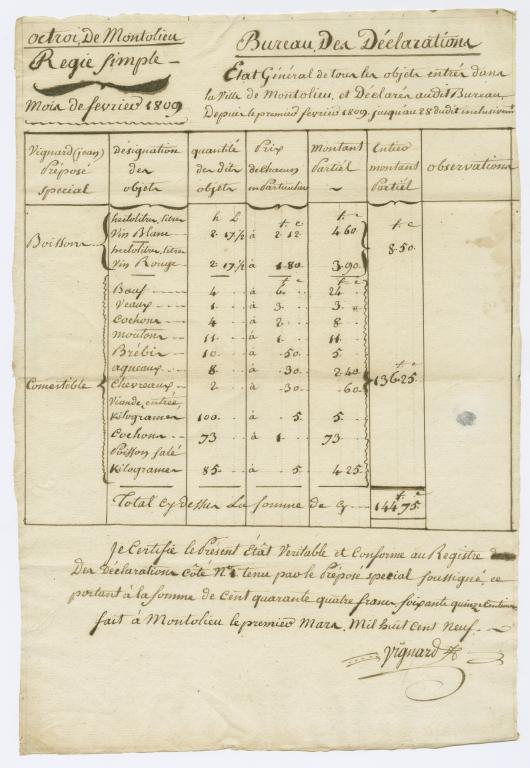 octroi, De Montolieu
Regie simple
Mois de fevrier 1809
Bureau Des Déclarations
État Général de tous les objets entrés dans
la Ville de Montolieu, et Déclarés audit Bureau,
Depuis le premier fevrier 1809. jusqu'au 28 dudit inclusivem.t
Vignard (jean) Préposé special | désignation des objets | quantité des dits objets | Prix de chacun en Particulier | Montant Partiel | Entier montant Partiel | observations
Boissons
hectolitre, litres h L f. c f. c f. c
Vin Blanc 2 17½ à 2 12 4 60
hectolitre, litres 8.50
Vin Rouge 2 17½ à 1 80 3 90
f c f. c
Bœuf 4 à 6 24
Veaux 1 à 3 3
Cochons 4 à 2 8
moutons 11 à 1 11
Brébis 10 à 50 5
agneaux 8 à 30 2 40
Comestible Chevreaux 2 à 30 60 f c 136 25
Viande, entrée,
Kilogrames 100 à 5 5
Cochons 73 à 1 73
Poisson salé
Kilogrames 85 à 5 4 25
Total cy dessus La somme de cy f. c 144 75
Je Certifié le Présent État Veritable et Conforme au Registre
Des Déclarations Côté N.º 1 tenu par le Préposé special soussigné, ce
portant à la somme de Cent quarante quatre francs soixante quinze Centimes
fait à Montolieu le premier Mars, Mil huit Cent Neuf
Vignard